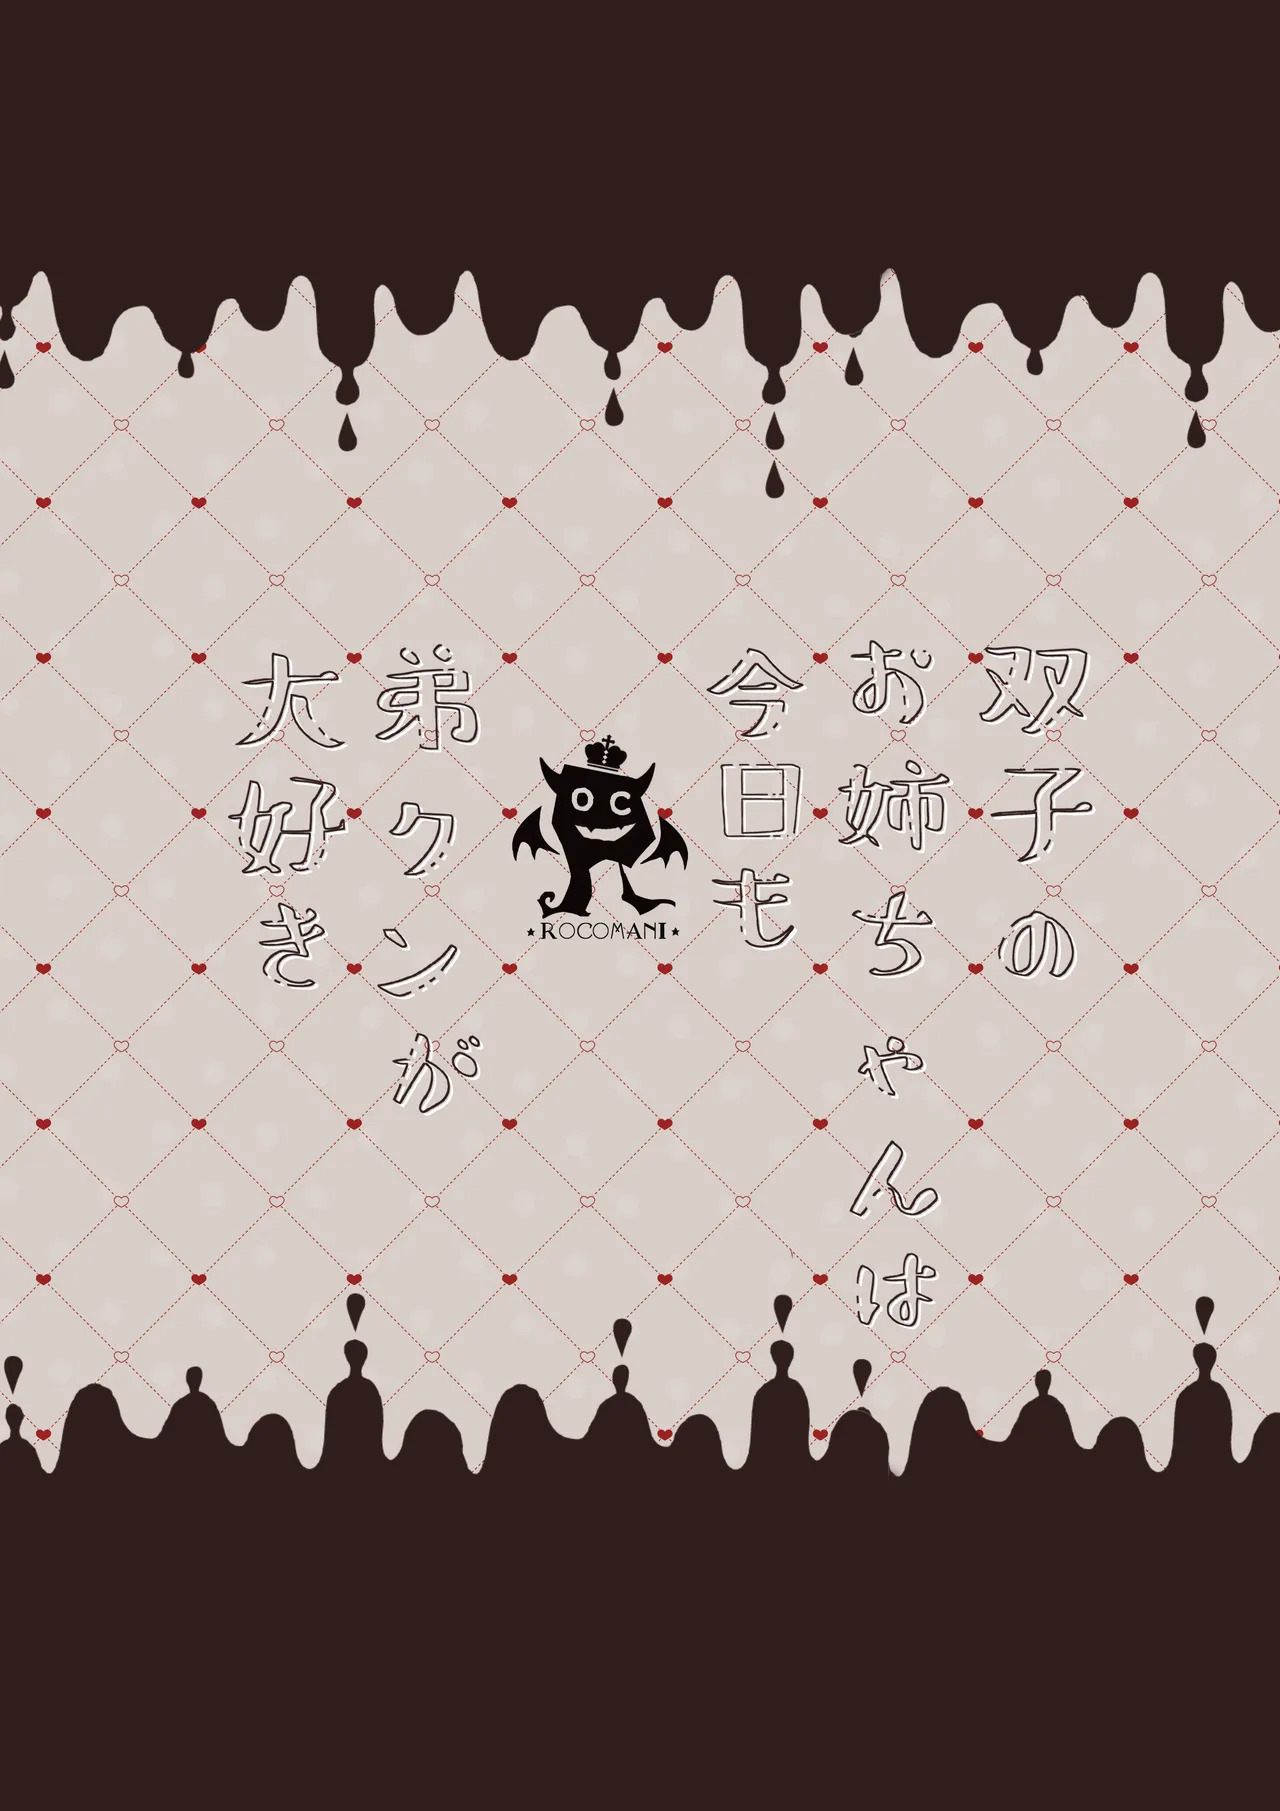 双子の
お姉ちゃんは
今日も
弟クンが
大好き
OC
★ROCOMANI★